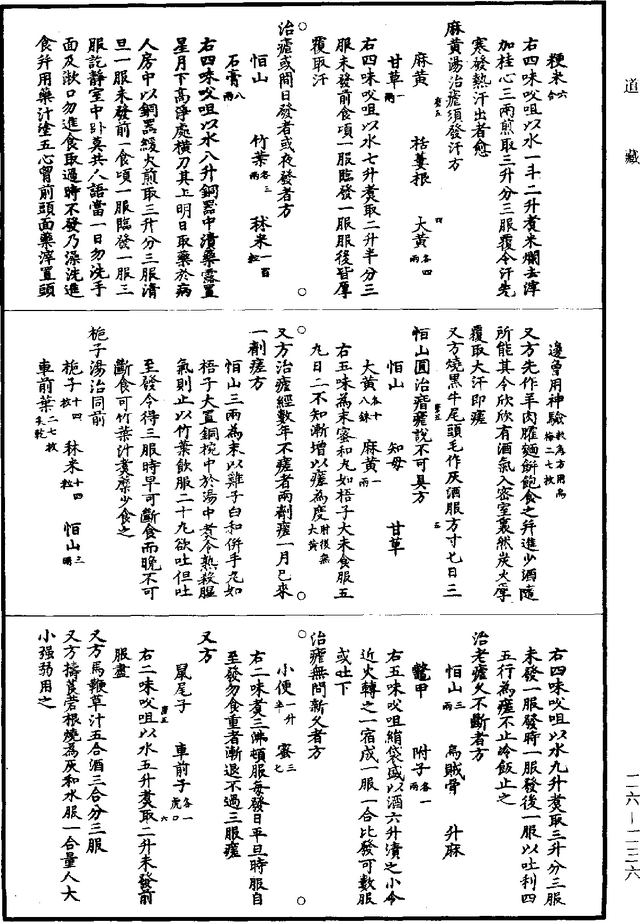 道藏
粳米六合
右四味㕮咀以水一斗二升煮米爛去滓
加桂心三兩煎取三升分三服覆令汗先
寒發熱汗出者愈
麻黃湯治瘧須發汗方
麻黃 栝蔞根 大黃各四兩
甘草一兩
右四味㕮咀以水七升煮取二升半分三
服未發前食頃一服臨發一服服後皆厚
覆取汗
治瘧或間日發者或夜發者方
恒山 竹葉各三兩 秫米一百粒
石膏八兩
右四味㕮咀以水八升銅器中漬藥露置
星月下高淨處橫刀其上明日取藥於病
人房中以銅器緩火煎取三升分三服清
旦一服未發前一食頃一服臨發一服三
服訖靜室中卧莫共人語當一日勿洗手
面及漱口勿進食取過時不發乃澡洗進
食并用藥汁塗五心胷前頭面藥滓置頭
邊曾用神驗
又方先作羊肉臛麵餅飽食之并進少酒隨
所能其令欣欣有酒氣入密室裏然炭火厚
覆取大汗即瘧
又方燒黑牛尾頭毛作灰酒服方寸匕日三
恒山圓治瘖瘧說不可具方
恒山 知母 甘草
大黃各十八銖 麻黃一兩
右五味為末蜜和丸如梧子大未食服五
九日二不知漸增以瘥為度肘後無大黃
又方治瘧經數年不瘥者兩劑瘥一月已來
一劑瘥方
恒山三兩為末以雞子白和併手丸如
梧子大置銅椀中於湯中煮令熱殺腥
氣則止以竹葉飲服二十九欲吐但吐
至發令得三服時早可斷食而晚不可
斷食可竹葉汁煮糜少食之
梔子湯治同前
梔子十四枚 秫米十四粒 恒山三兩
車前葉二七枚炙乾
右四味㕮咀以水九升煮取三升分三服
未發一服發時一服發後一服以吐利四
五行為瘥不止冷飯止之
治老瘧久不斷者方
恒山三兩 烏賊骨 升麻
鼈甲 附子各一兩
右五味㕮咀絹袋盛以酒六升漬之小令
近火轉之一宿成一服一合比發可數服
或吐下
治瘧無問新久者方
小便一升半 蜜三七
右二味煮三沸頓服每發日平旦時服自
至發勿食重者漸退不過三服瘥
又方
鼠尾子 車前子各一虎口
右二味㕮咀以水五升煮取二升未發前
服盡
又方馬鞭草汁五合酒三合分三服
又方擣莨菪根燒為灰和水服一合量人大
小強弱用之
二六－二三六